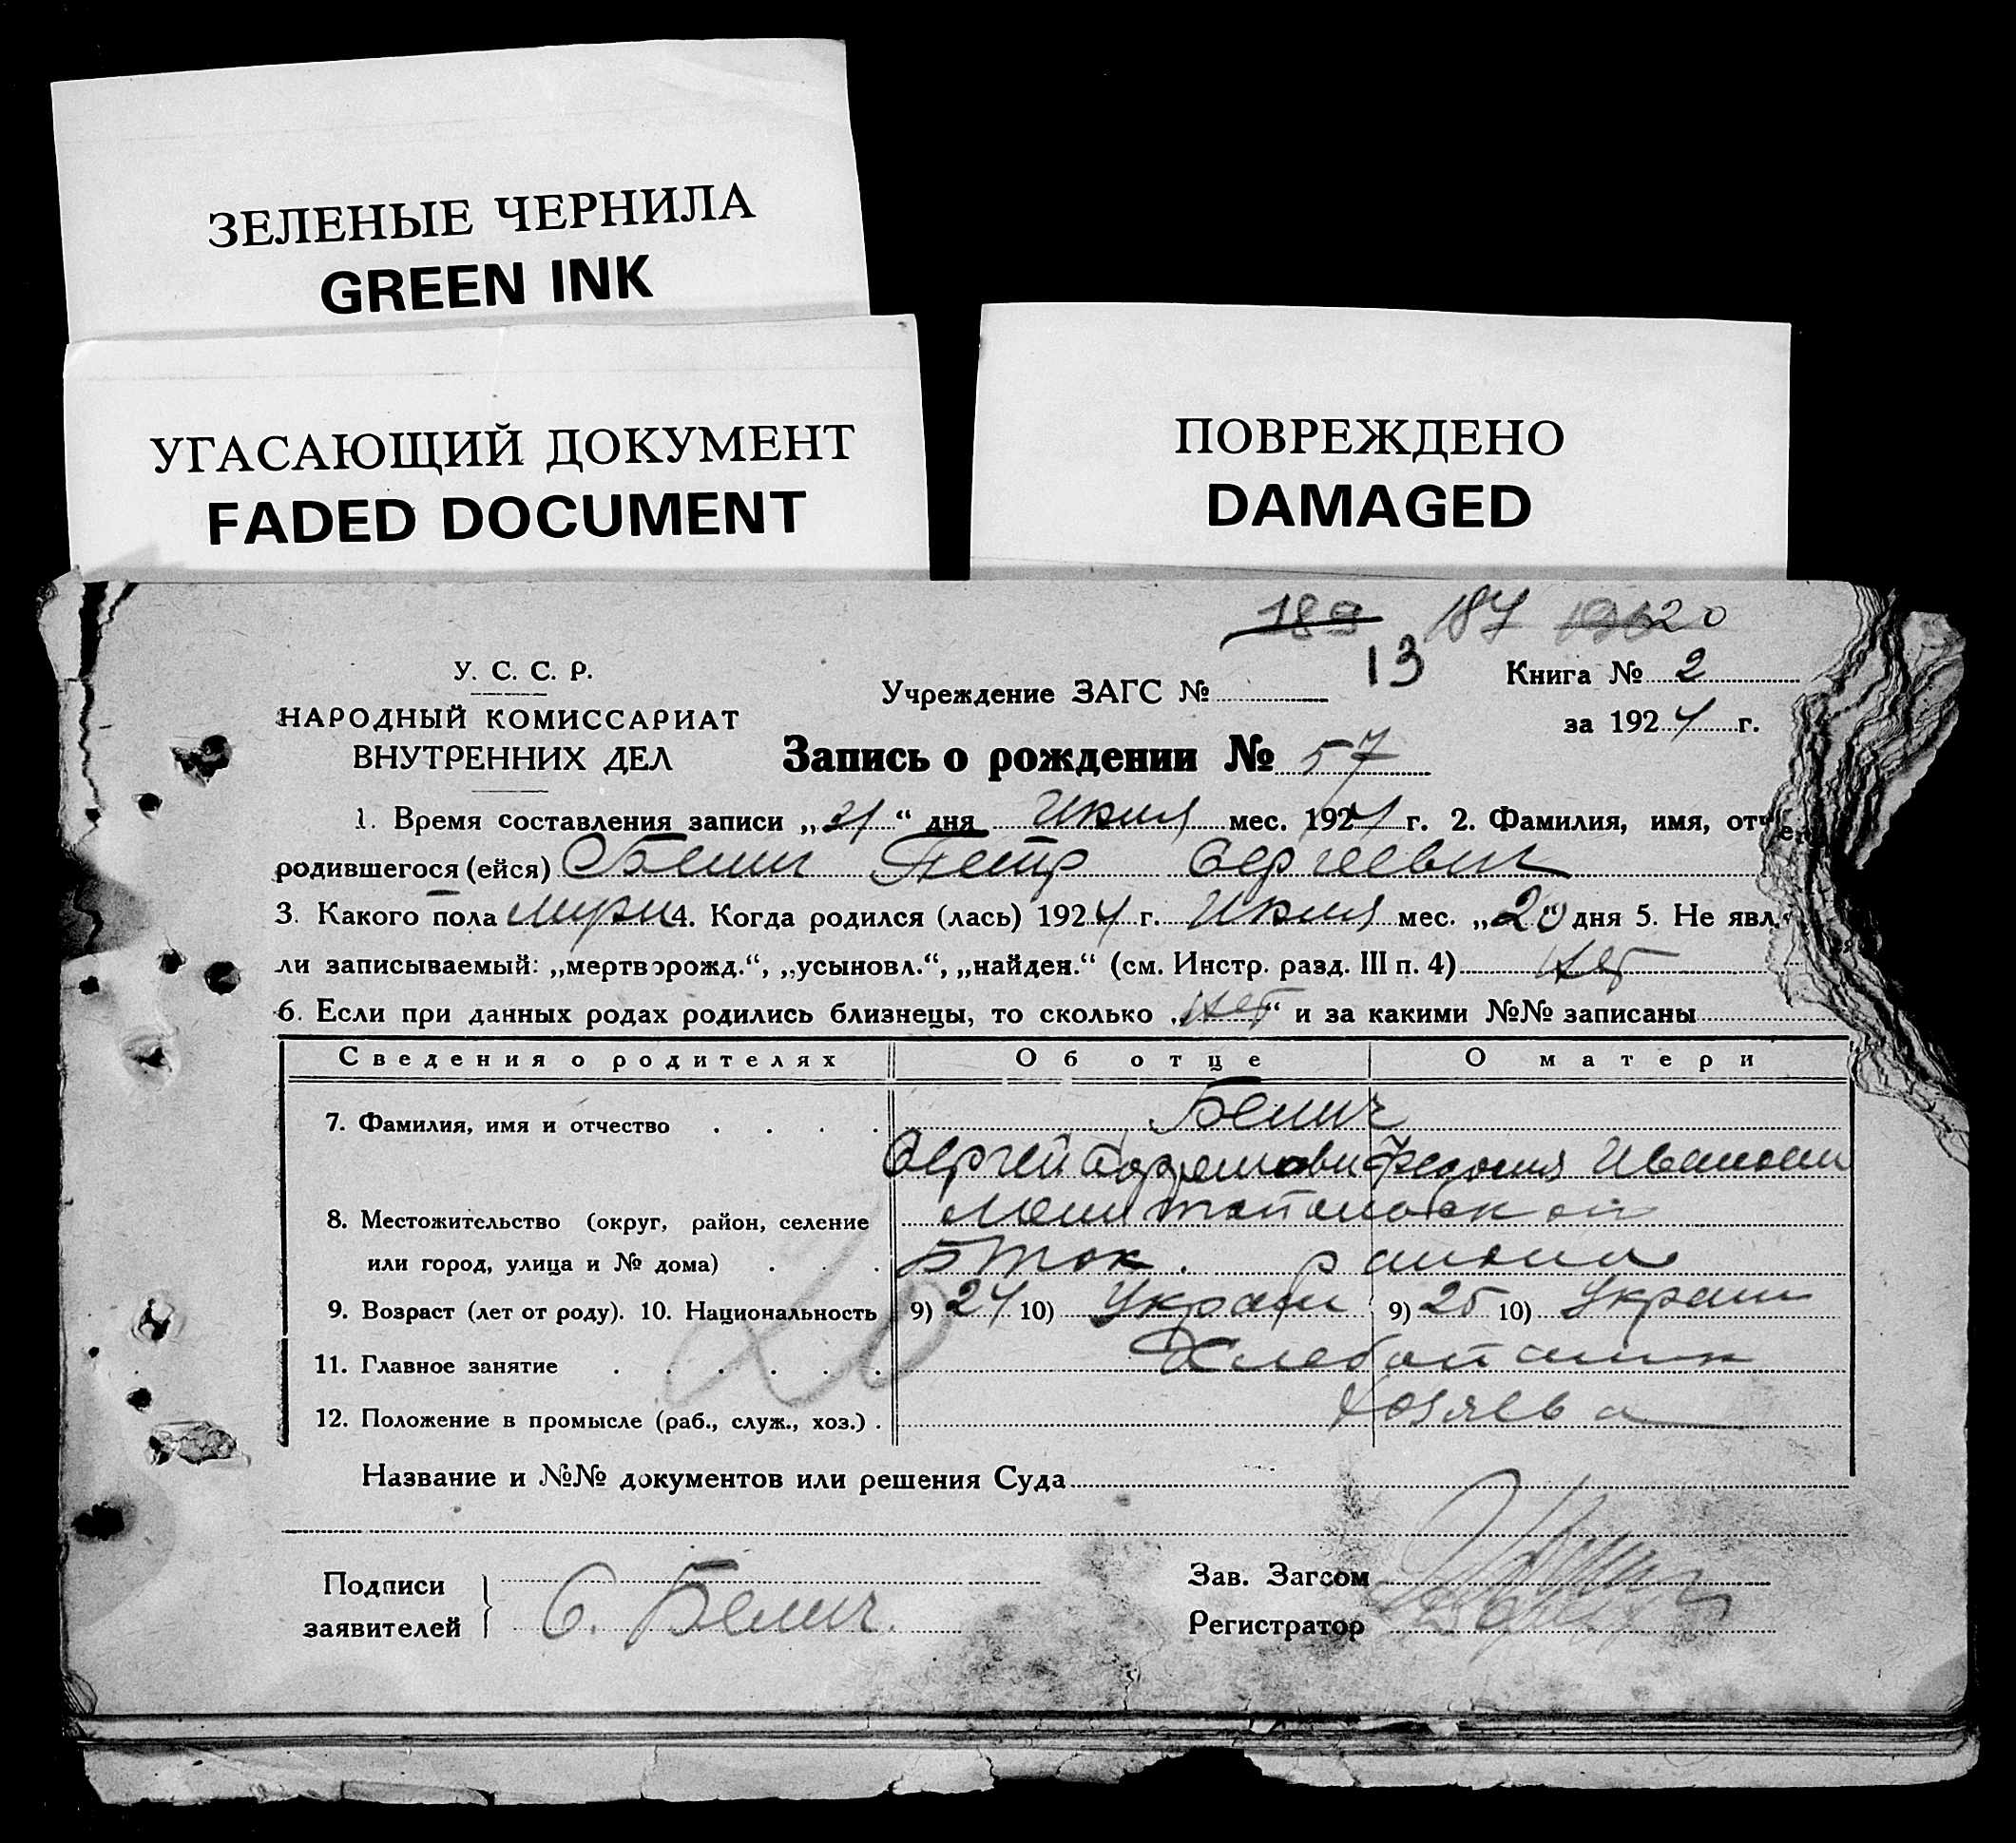 ЗЕЛЕНЫЕ ЧЕРНИЛА
GREEN INK
УГАСАЮЩИЙ ДОКУМЕНТ
FADED DOCUMENT
ПОВРЕЖДЕНО
DAMAGED
189 187 20
13
У. С. С. Р.
НАРОДНЫЙ КОМИССАРИАТ
ВНУТРЕННИХ ДЕЛ
Учреждение ЗАГС №
Книга № 2
за 1924 г.
Запись о рождении № 57
1. Время составления записи „21“ дня Июля мес. 1924 г. 2. Фамилия, имя, отче
родившегося (ейся) Белич Петр Сергеевич
3. Какого пола мужс 4. Когда родился (лась) 1924 г. Июля мес. „20“ дня 5. Не явл.
ли записываемый: „мертворожд.“, „усыновл.“, „найден.“ (см. Инстр. разд. III п. 4) нет
6. Если при данных родах родились близнецы, то сколько „нет“ и за какими №№ записаны
Сведения о родителях Об отце О матери
7. Фамилия, имя и отчество Белич
Сергей Федосия Ивановн
8. Местожительство (округ, район, селение
или город, улица и № дома) района
9. Возраст (лет от роду). 10. Национальность 9) 24 10) Украин 9) 25 10) Украин
11. Главное занятие Хлебопашк
12. Положение в промысле (раб., служ., хоз.) хозяева
20
Название и №№ документов или решения Суда
Подписи
заявителей
С. Белич.
Зав. Загсом
Регистратор